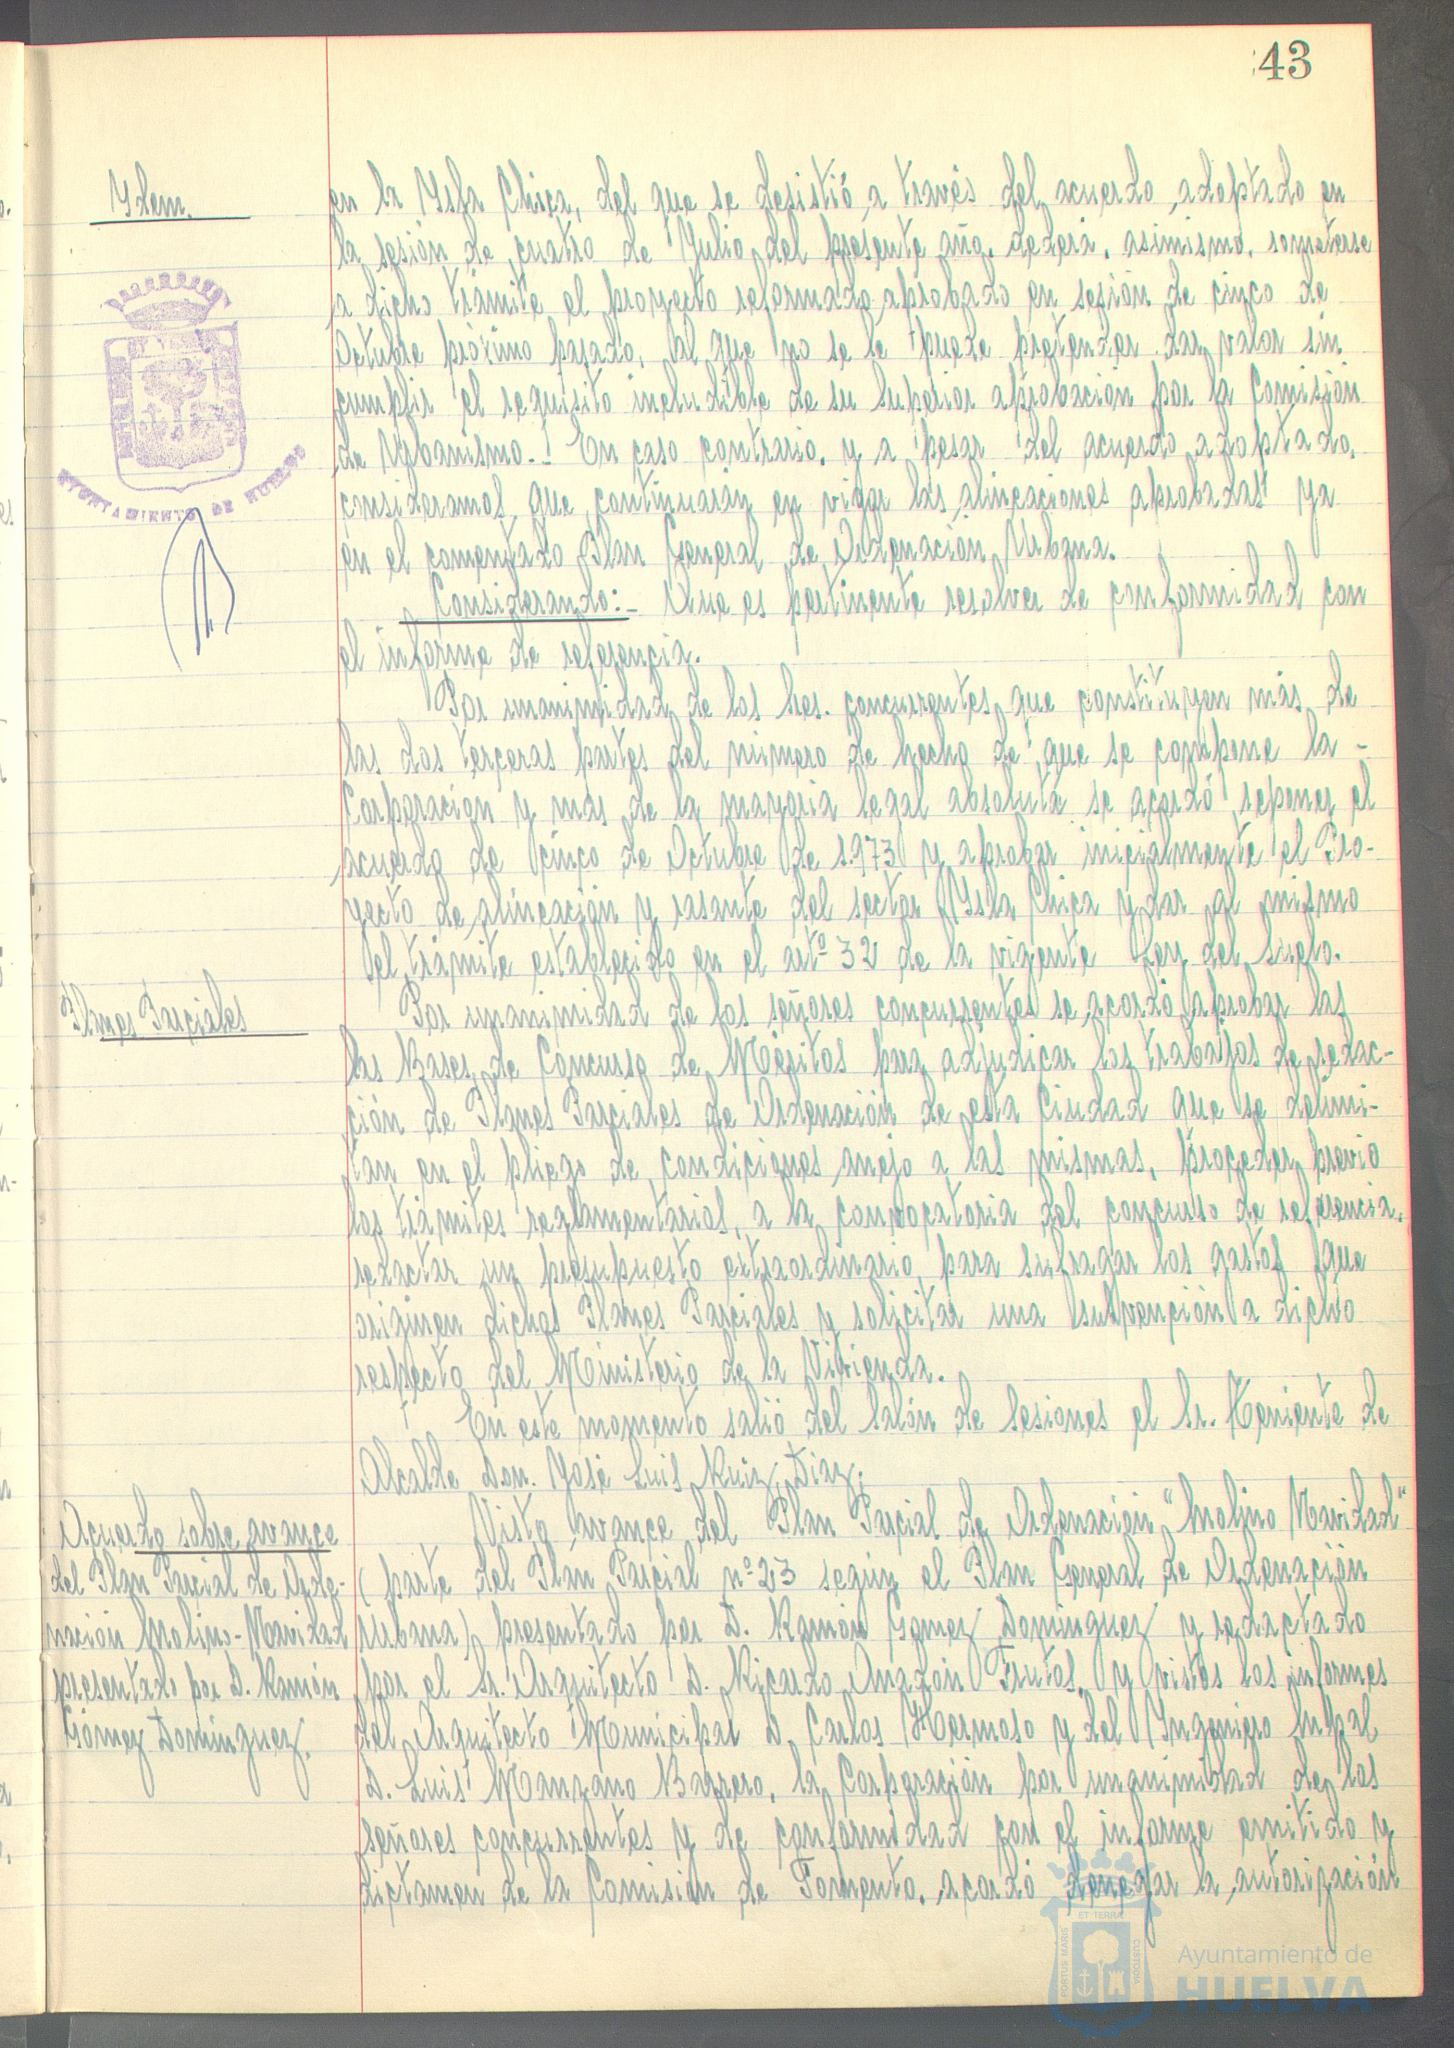 43
Ydem.
en la Ysla Chica, del que se desistió a través del acuerdo adoptado en
la sesión de cuatro de Julio del presente año, deberá, asimismo, someterse
a dicho trámite el proyecto reformado aprobado en sesión de cinco de
Octubre próximo pasado, al que no se le puede pretender dar valor sin
cumplir el requisito ineludible de su superior aprobación por la Comisión
de Urbanismo.- En caso contrario, y a pesar del acuerdo adoptado,
consideramos que continuarán en vigor las alineaciones aprobadas ya
en el comentado Plan General de Ordenación Urbana.
Considerando:- Que es pertinente resolver de conformidad con
el informe de referencia.
Por unanimidad de los Sres. concurrentes que constituyen más de
las dos terceras partes del número de hecho de que se compone la -
Corporación y más de la mayoria legal absoluta se acordó reponer el
acuerdo de cinco de Octubre de 1.973 y aprobar inicialmente el Pro-
yecto de alineación y rasante del sector Ysla Chica y dar al mismo
el trámite establecido en el artº 32 de la vigente Ley del Suelo.
Planes Parciales
Por unanimidad de los señores concurrentes se acordó aprobar las
las Bases de Concurso de Méritos para adjudicar los trabajos de redac-
ción de Planes Parciales de Ordenación de esta Ciudad que se delimi-
tan en el pliego de condiciones anejo a las mismas, proceder previo
los trámites reglamentarios, a la convocatoria del concurso de referencia,
redactar un presupuesto extraordinario, para sufragar los gastos que
originen dichos Planes Parciales y solicitar una subvención a dicho
respecto del Ministerio de la Vivienda.
En este momento salió del Salón de Sesiones el Sr. Teniente de
Alcalde Don. José Luis Ruiz Diaz.
Acuerdo sobre avance
del Plan Parcial de Orde-
nación Molino-Navidad
presentado por D. Ramón
Gómez Dominguez.
Visto avance del Plan Parcial de Ordenación "Molino Navidad"
(parte del Plan Parcial nº 23 según el Plan General de Ordenación
Urbana) presentado por D. Ramón Gomez Dominguez y redactado
por el Sr. Arquitecto D. Ricardo Anadón Frutos, y vistos los informes
del Arquitecto Municipal D. Carlos Hermoso y del Ingeniero Mpal
D. Luis Manzano Barrero, la Corporación por unanimidad de los
señores concurrentes y de conformidad con el informe emitido y
dictamen de la Comisión de Fomento, acordó denegar la autorización
AYUNTAMIENTO DE HUELVA
ET TERRA
PORTUS MARIS
CUSTODIA
Ayuntamiento de
HUELVA